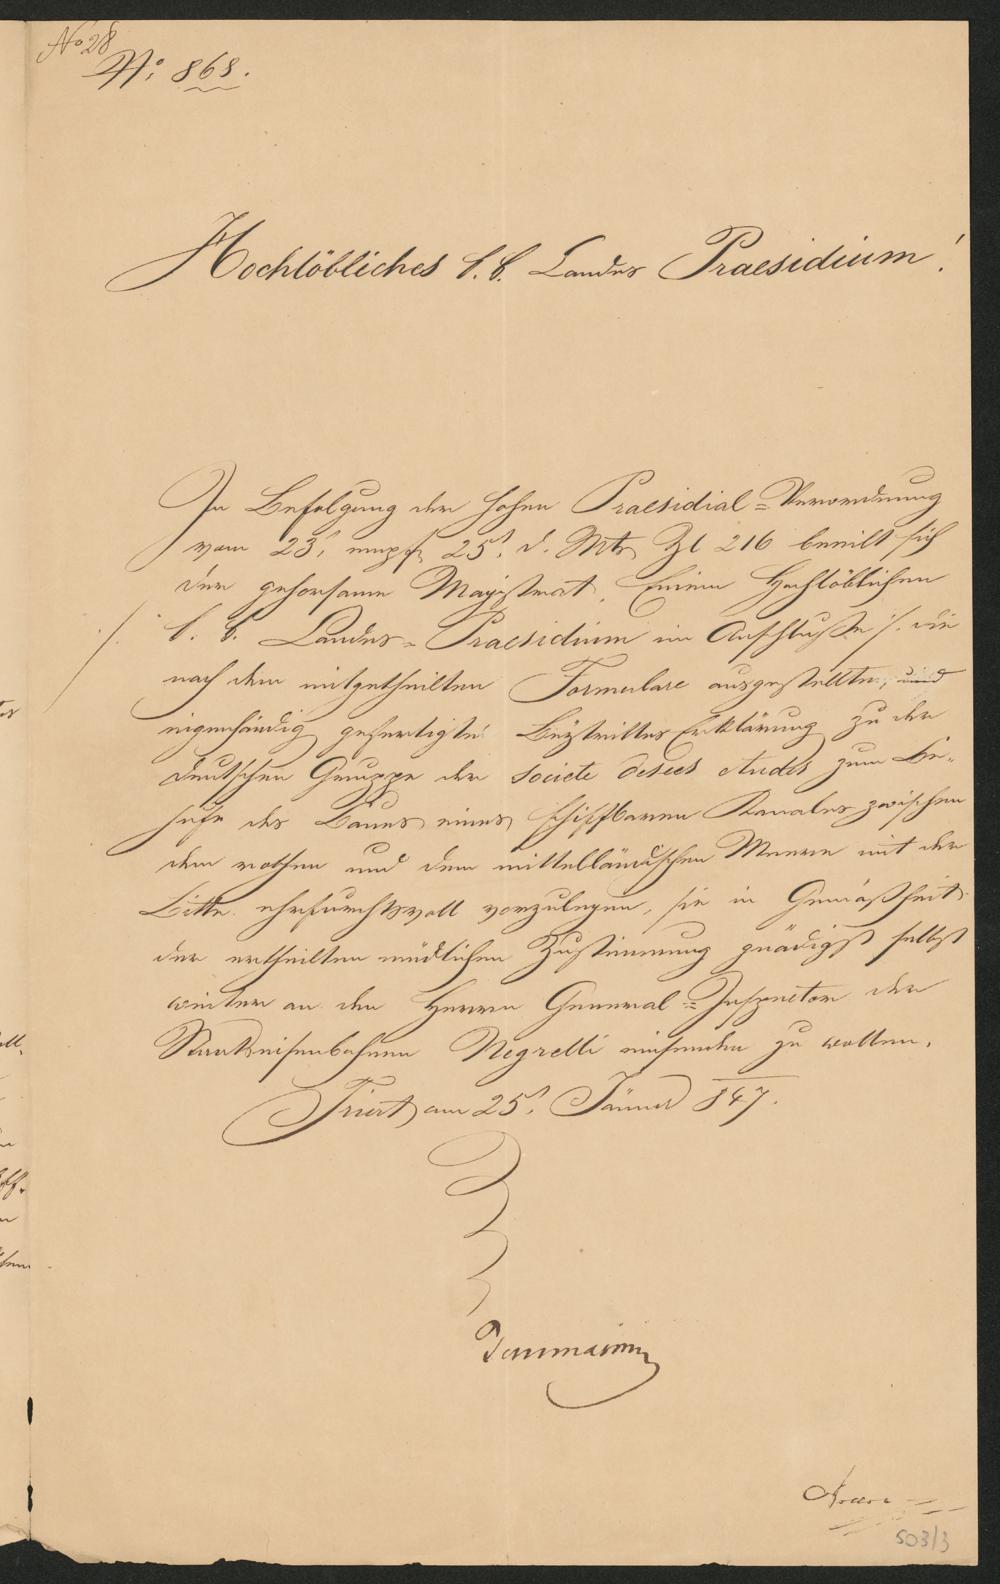 No 28
No: 868.
Hochlöbliches k. k. Landes Praesidium!
In Befolgung der hohen Praesidial=Verordnung
vom 23', empf. 25' d. Mts Zl 216 beeilt sich
der gehorsame Magistrat, Einem Hochlöblichen
./. k. k. Landes=Praesidium im Anschluße ./. die
nach dem mitgetheilten Formulare ausgestellte, und
eigenhändig gefertigte Beytrittes Erklärung zu der
deutschen Gruppe der Societe des études zum Be-
hufe des Baues eines schiffbaren Kanales zwischen
dem rothen und dem mittelländischen Meere mit der
Bitte ehrfurchtsvoll vorzulegen, sie in Gemäßheit
der ertheilten mündlichen Zustimmung gnädigst selbst
weiter an den Herrn General=Inspector der
Staatseisenbahnen Negrelli einsenden zu wollen.
Triest am 25' Jänner 847.
Tommasini
503/3